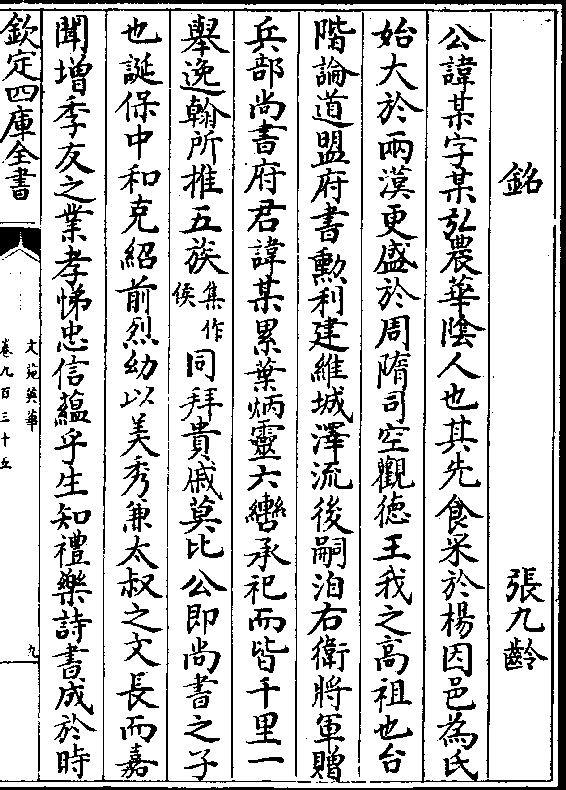 銘 張九齡
公諱某字某弘農華陰人也其先食采於楊因邑為氏
始大於兩漢更盛於周隋司空觀德王我之高祖也台
階論道盟府書勲利建維城澤流後嗣洎右衛將軍贈
兵部尚書府君諱某累葉炳靈六轡承祀而皆千里一
舉逸翰所推五族集作侯同拜貴戚莫比公即尚書之子
也誕保中和克紹前烈幼以美秀兼太叔之文長而嘉
聞增季友之業孝悌忠信蘊乎生知禮樂詩書成於時
欽定四庫全書
文苑英華
卷九百三十五
九